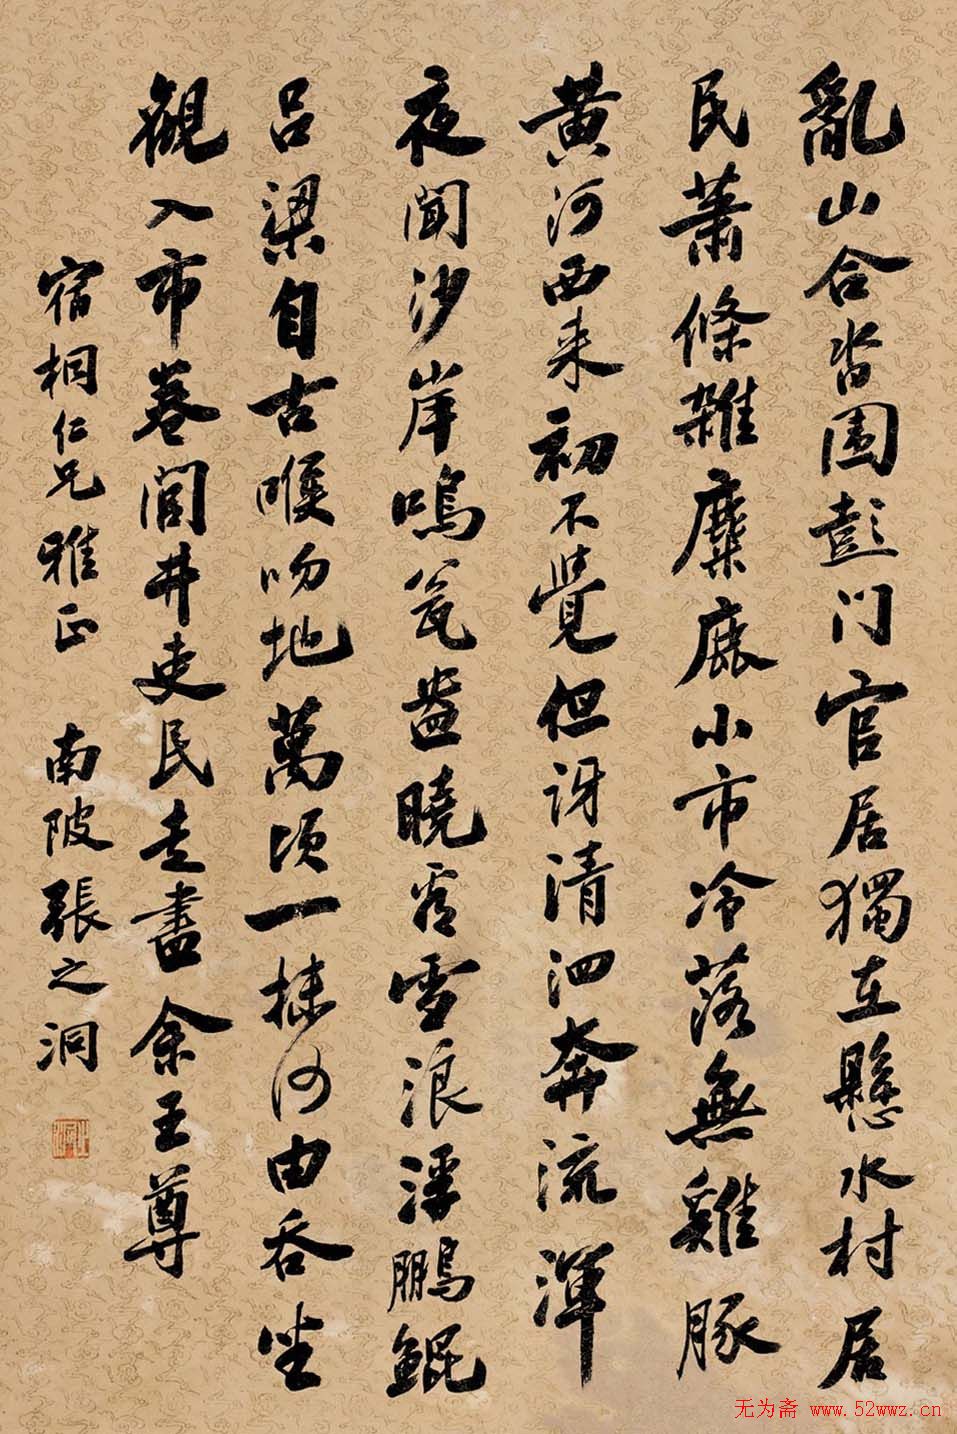 亂山合沓围彭门官居獨在懸水村居
民蕭條雜麋鹿小市冷落無雞豚
黄河西来初不覺但訝清泗奔流渾
夜聞沙岸鳴瓮盎曉看雪浪浮鵬鯤
吕梁自古喉吻地萬頃一抹何由吞坐
觀入市卷閭井吏民走盡余王尊
宿桐仁兄雅正 南陂張之洞
无为斋 www.52wwz.cn